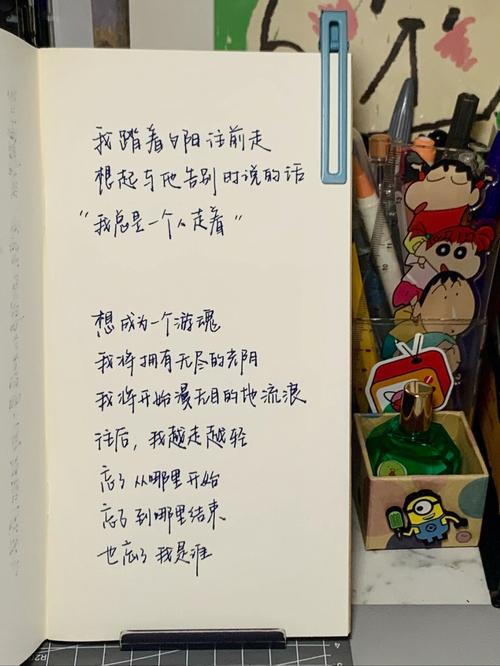 我踏着夕阳往前走
想起与他告别时说的话
“我总是一个人走着”
想成为一个游魂
我将拥有无尽的光阴
我将开始漫无目的地流浪
往后，我越走越轻
忘了从哪里开始
忘了到哪里结束
也忘了我是谁